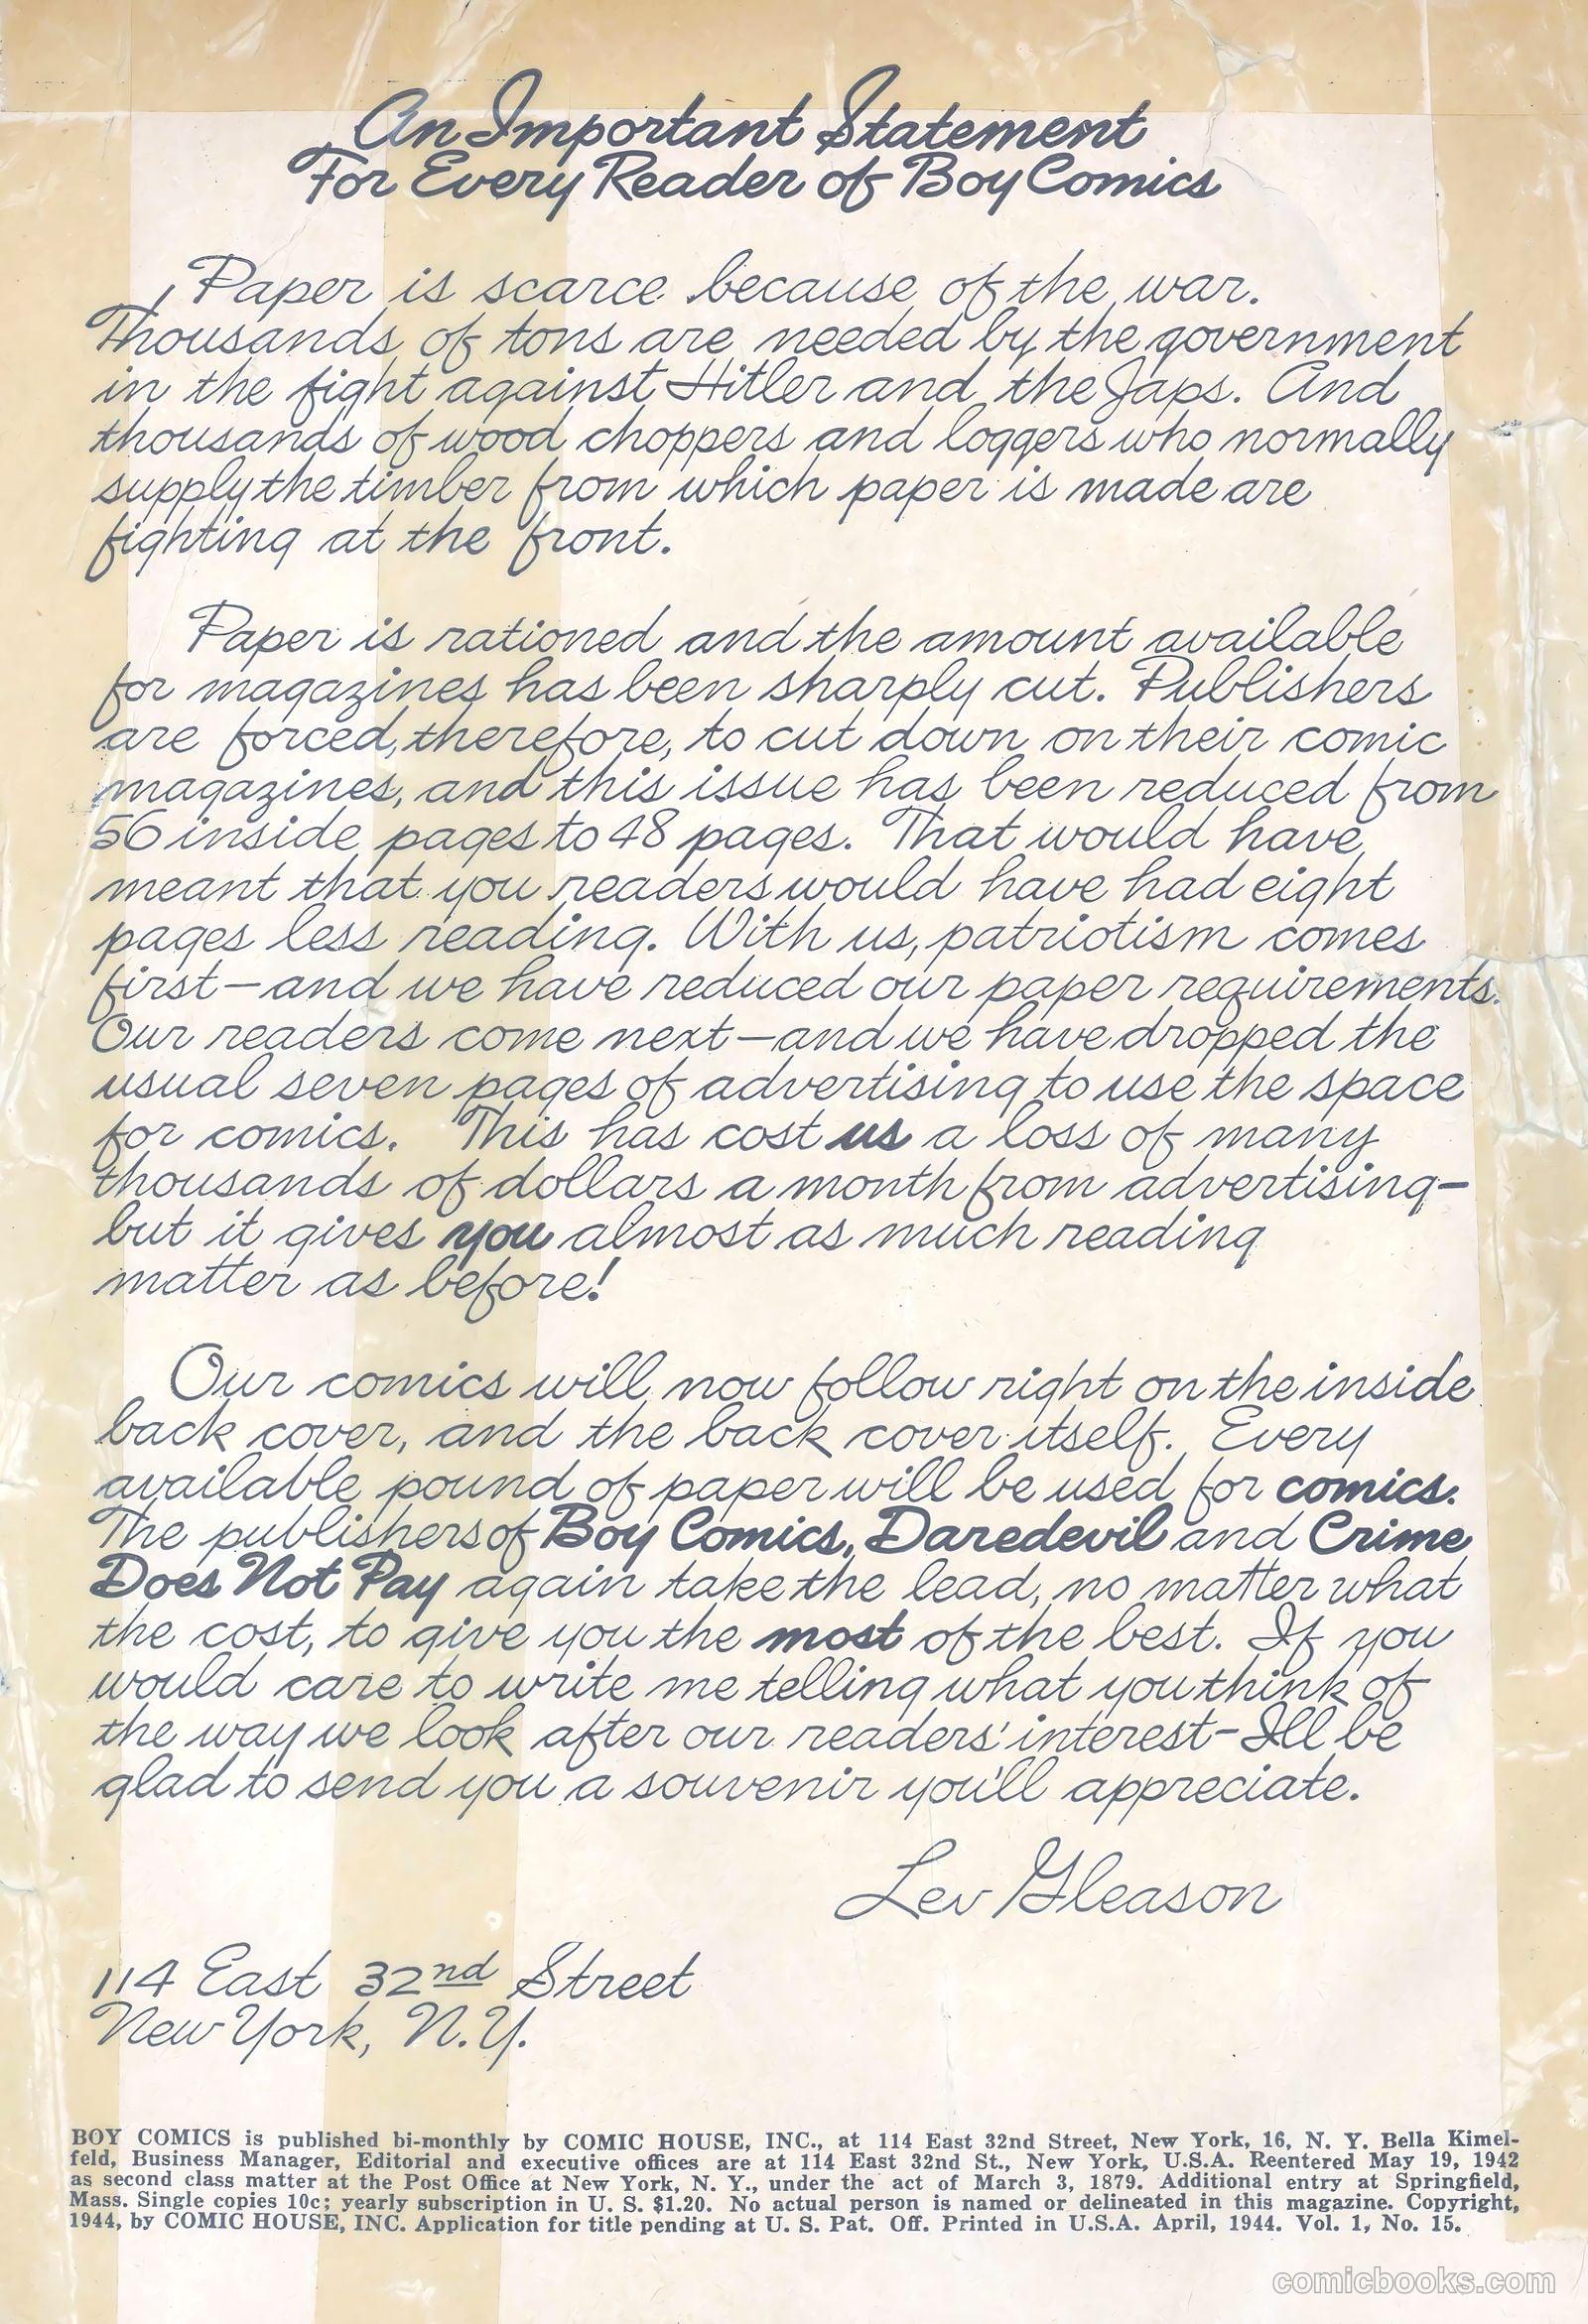 An Important Statement
For Every Reader of Boy Comics
Paper is scarce because of the war.
Thousands of tons are needed by the government
in the fight against Hitler and the Japs. And
thousands of wood choppers and loggers who normally
supply the timber from which paper is made are
fighting at the front.
Paper is rationed and the amount available
for magazines has been sharply cut. Publishers
are forced, therefore, to cut down on their comic
magazines, and this issue has been reduced from
56 inside pages to 48 pages. That would have
meant that you readers would have had eight
pages less reading. With us, patriotism comes
first—and we have reduced our paper requirements.
Our readers come next—and we have dropped the
usual seven pages of advertising to use the space
for comics. This has cost us a loss of many
thousands of dollars a month from advertising—
but it gives you almost as much reading
matter as before!
Our comics will now follow right on the inside
back cover, and the back cover itself. Every
available pound of paper will be used for comics.
The publishers of Boy Comics, Daredevil and Crime
Does Not Pay again take the lead, no matter what
the cost, to give you the most of the best. If you
would care to write me telling what you think of
the way we look after our readers' interest—I'll be
glad to send you a souvenir you'll appreciate.
Lev Gleason
114 East 32nd Street
New York, N.Y.
BOY COMICS is published bi-monthly by COMIC HOUSE, INC., at 114 East 32nd Street, New York, 16, N. Y. Bella Kimel-
feld, Business Manager, Editorial and executive offices are at 114 East 32nd St., New York, U.S.A. Reentered May 19, 1942
as second class matter at the Post Office at New York, N. Y., under the act of March 3, 1879. Additional entry at Springfield,
Mass. Single copies 10c; yearly subscription in U. S. $1.20. No actual person is named or delineated in this magazine. Copyright,
1944, by COMIC HOUSE, INC. Application for title pending at U. S. Pat. Off. Printed in U.S.A. April, 1944. Vol. 1, No. 15.
comicbooks.com